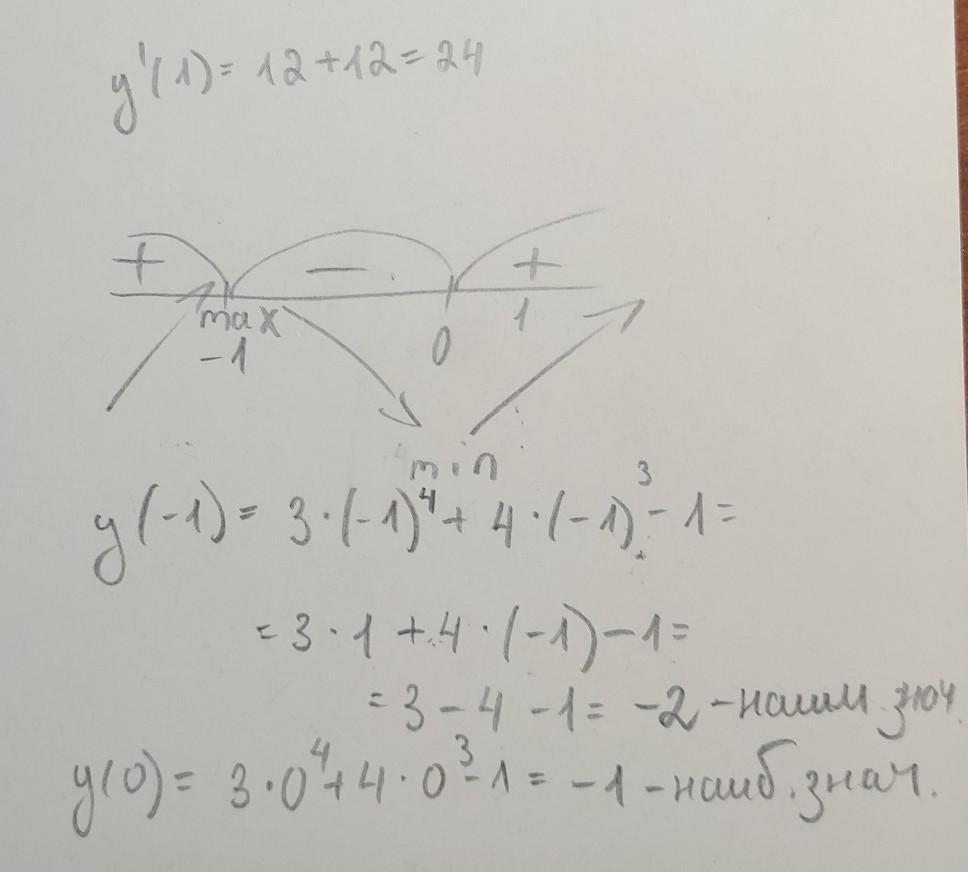 y'(1) = 12 + 12 = 24
+ − +
max 1
-1 0
min
y(-1) = 3·(-1)⁴ + 4·(-1)³ - 1 =
= 3·1 + 4·(-1) - 1 =
= 3 - 4 - 1 = -2 - наим. знач.
y(0) = 3·0⁴ + 4·0³ - 1 = -1 - наиб. знач.